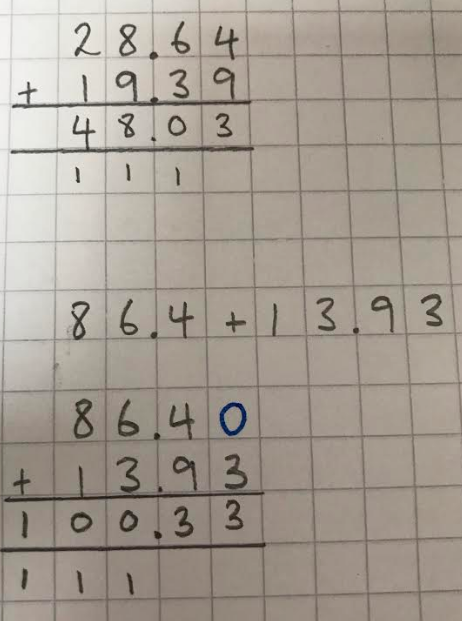 28.64
+ 19.39
48.03
1 1 1
86.4 + 13.93
86.40
+ 13.93
100.33
1 1 1